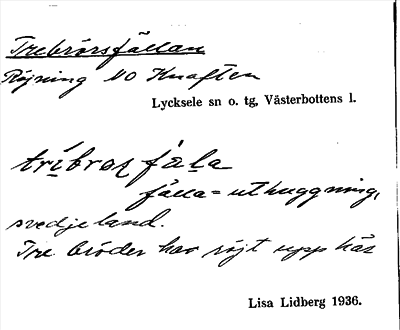 Trebrorsfällan
Röjning NO Knaften
Lycksele sn o. tg, Västerbottens l.
tribros fäla
fälla = uthuggning,
svedjeland.
Tre bröder har röjt upp här
Lisa Lidberg 1936.